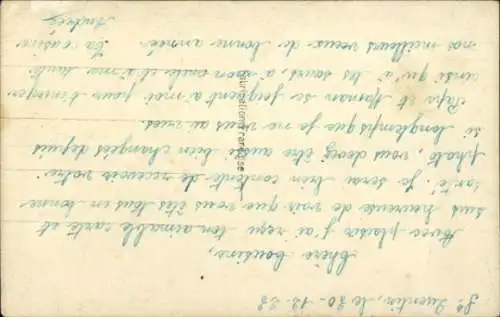 St Quentin, le 30-12-38
Chère Cousine,
Avec plaisir j'ai reçu ton aimable carte et
suis heureuse de voir que vous êtes tous en bonne
santé. Je serai bien contente de recevoir votre
photo, vous devez être aussi bien changées depuis
si longtemps que je ne vous ai vues.
Papa et Maman se joignent à moi pour t'envoyer
ainsi qu'à tes sœurs à mon oncle et à ma tante
nos meilleurs vœux de bonne année. Ta cousine
Andrée
Fabrication Française